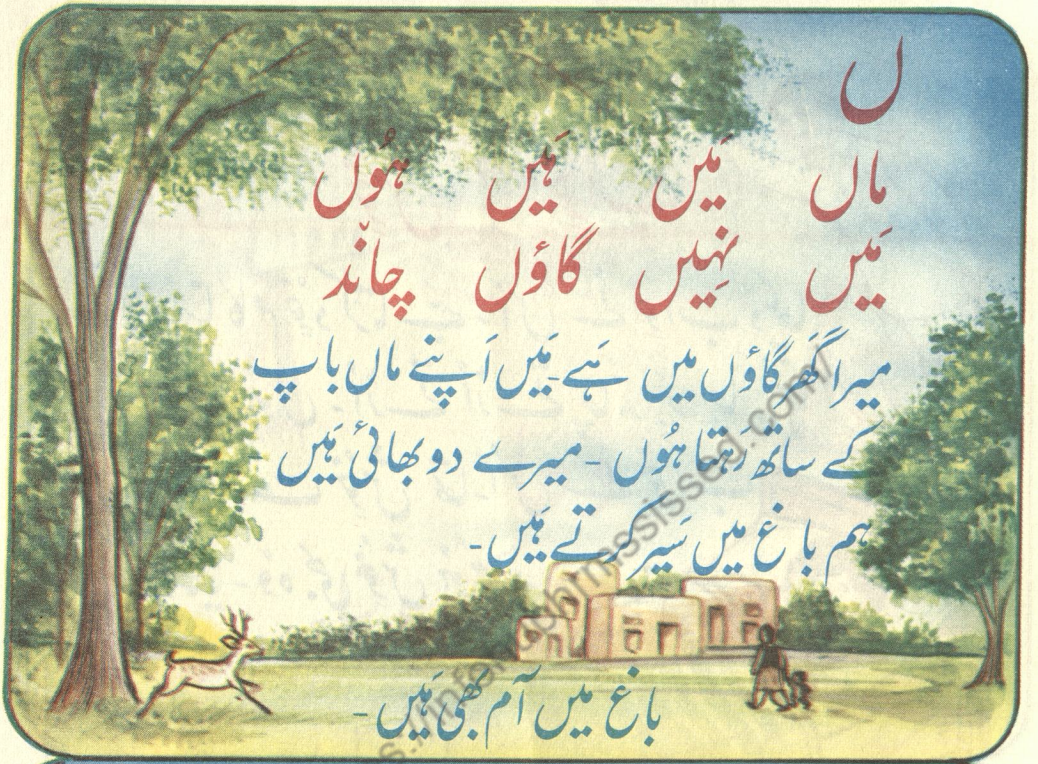 ں
ماں مَیں ہَیں ہُوں
مَیں نہِیں گاؤں چاند
میرا گھر گاؤں میں ہَے۔ مَیں اَپنے ماں باپ
کے ساتھ رَہتا ہُوں ۔ میرے دو بھائی ہَیں
ہم باغ میں سَیر کرتے ہَیں۔
باغ میں آم بھی ہَیں۔